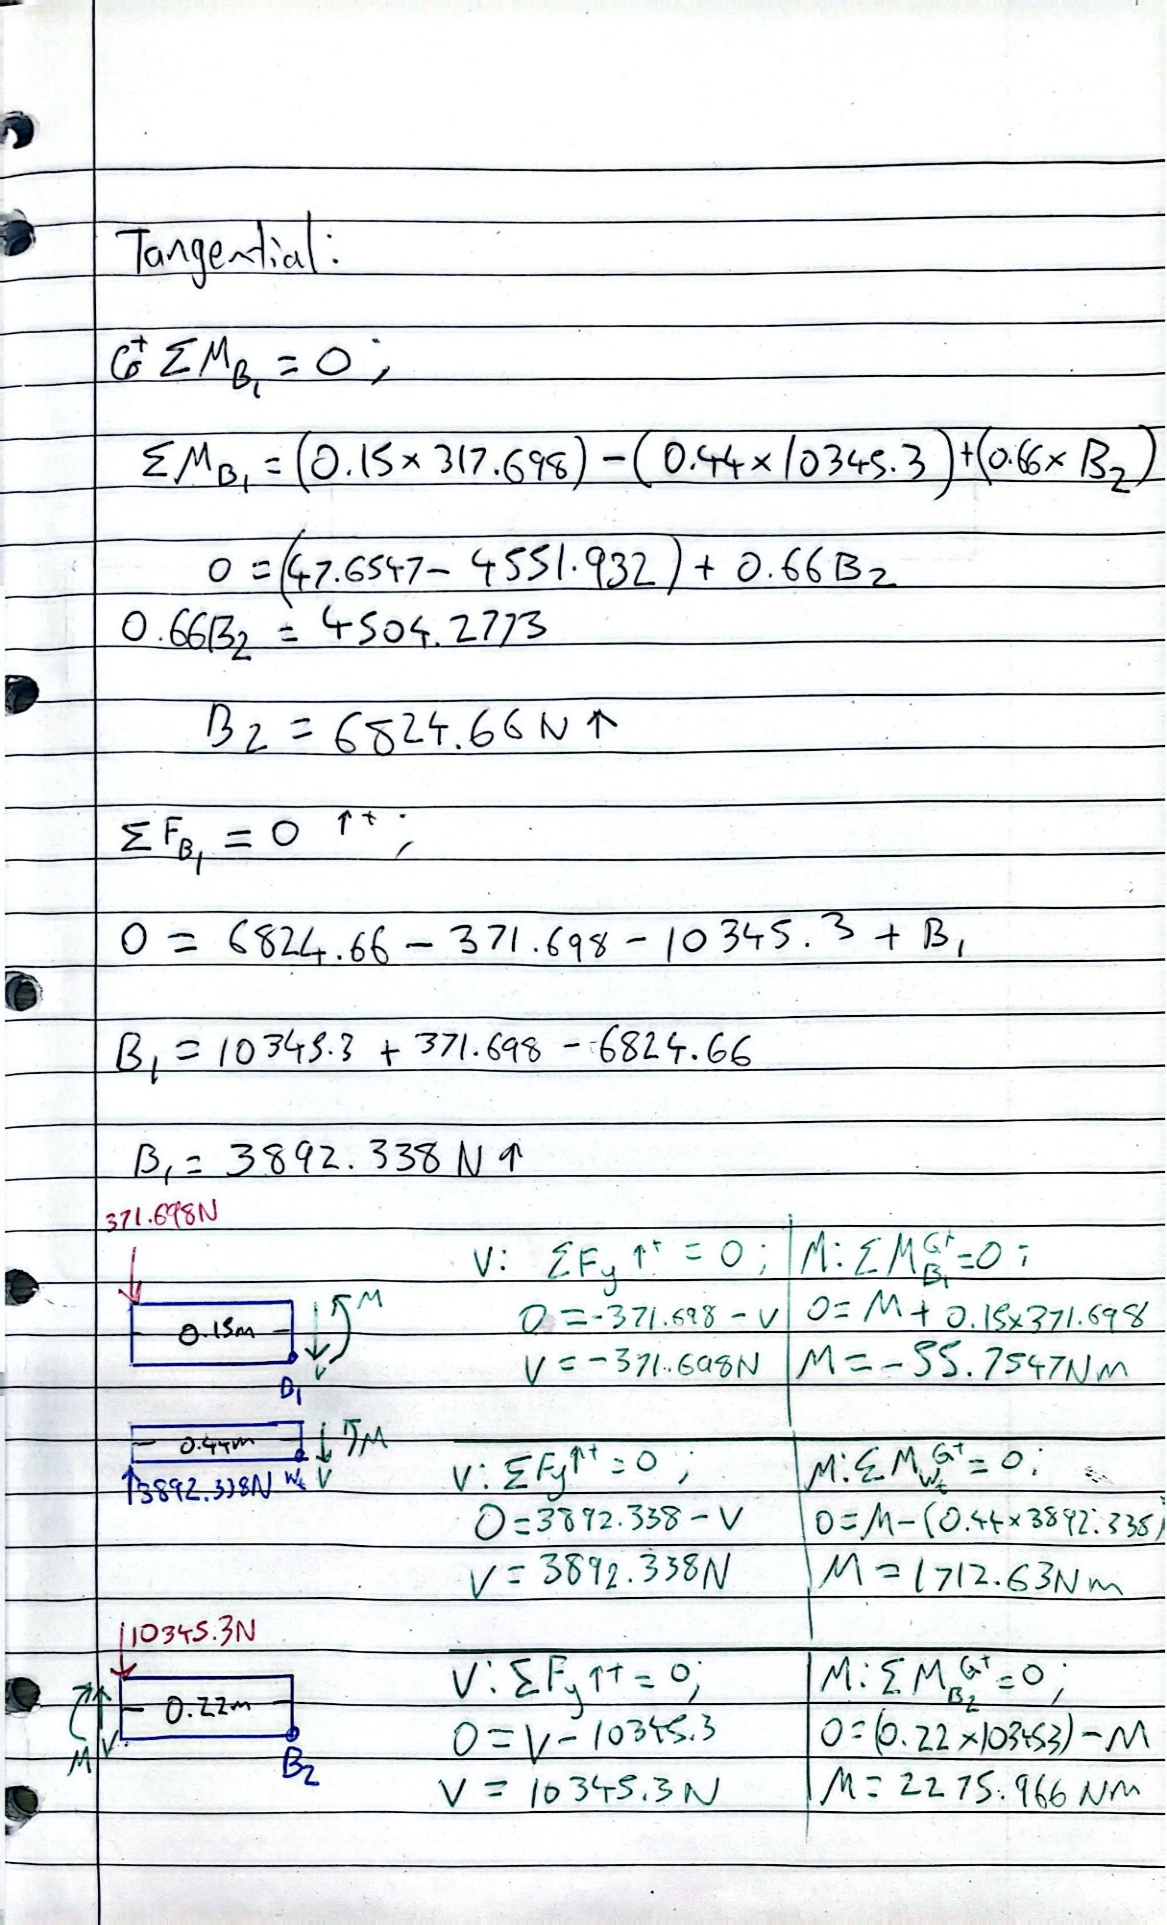 Tangential:
↺+ ΣM_B₁ = 0 ;
ΣM_B₁ = (0.15 × 317.698) − (0.44 × 10345.3) + (0.66 × B₂)
0 = (47.6547 − 4551.932) + 0.66B₂
0.66B₂ = 4504.2773
B₂ = 6824.66 N ↑
ΣF_B₁ = 0 ↑+ ;
0 = 6824.66 − 371.698 − 10345.3 + B₁
B₁ = 10345.3 + 371.698 − 6824.66
B₁ = 3892.338 N ↑
371.698N
0.15m
M
V
B₁
V: ΣFy ↑+ = 0 ;
0 = -371.698 − V
V = −371.698N
M: ΣM_B₁ ↺+ = 0 ;
0 = M + 0.15×371.698
M = −55.7547Nm
0.44m
M
↑3892.338N
Wt
V
V: ΣFy ↑+ = 0 ;
0 = 3892.338 − V
V = 3892.338N
M: ΣM_Wt ↺+ = 0 ;
0 = M − (0.44×3892.338)
M = 1712.63Nm
10345.3N
0.22m
M
V
B₂
V: ΣFy ↑+ = 0 ;
0 = V − 10345.3
V = 10345.3N
M: ΣM_B₂ ↺+ = 0 ;
0 = (0.22×10345.3) − M
M = 2275.966 Nm